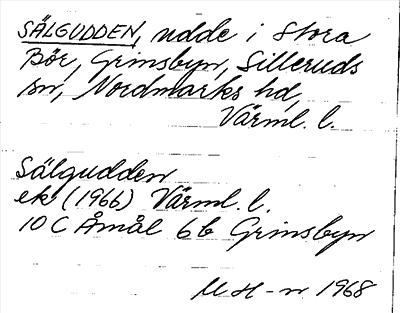 SÄLGUDDEN, udde i Stora
Bör, Grinsbyn, Silleruds
sn, Nordmarks hd,
Värml. l.
Sälgudden
ek (1966) Värml. l.
10 C Åmål 6b Grinsbyn
M H-n 1968